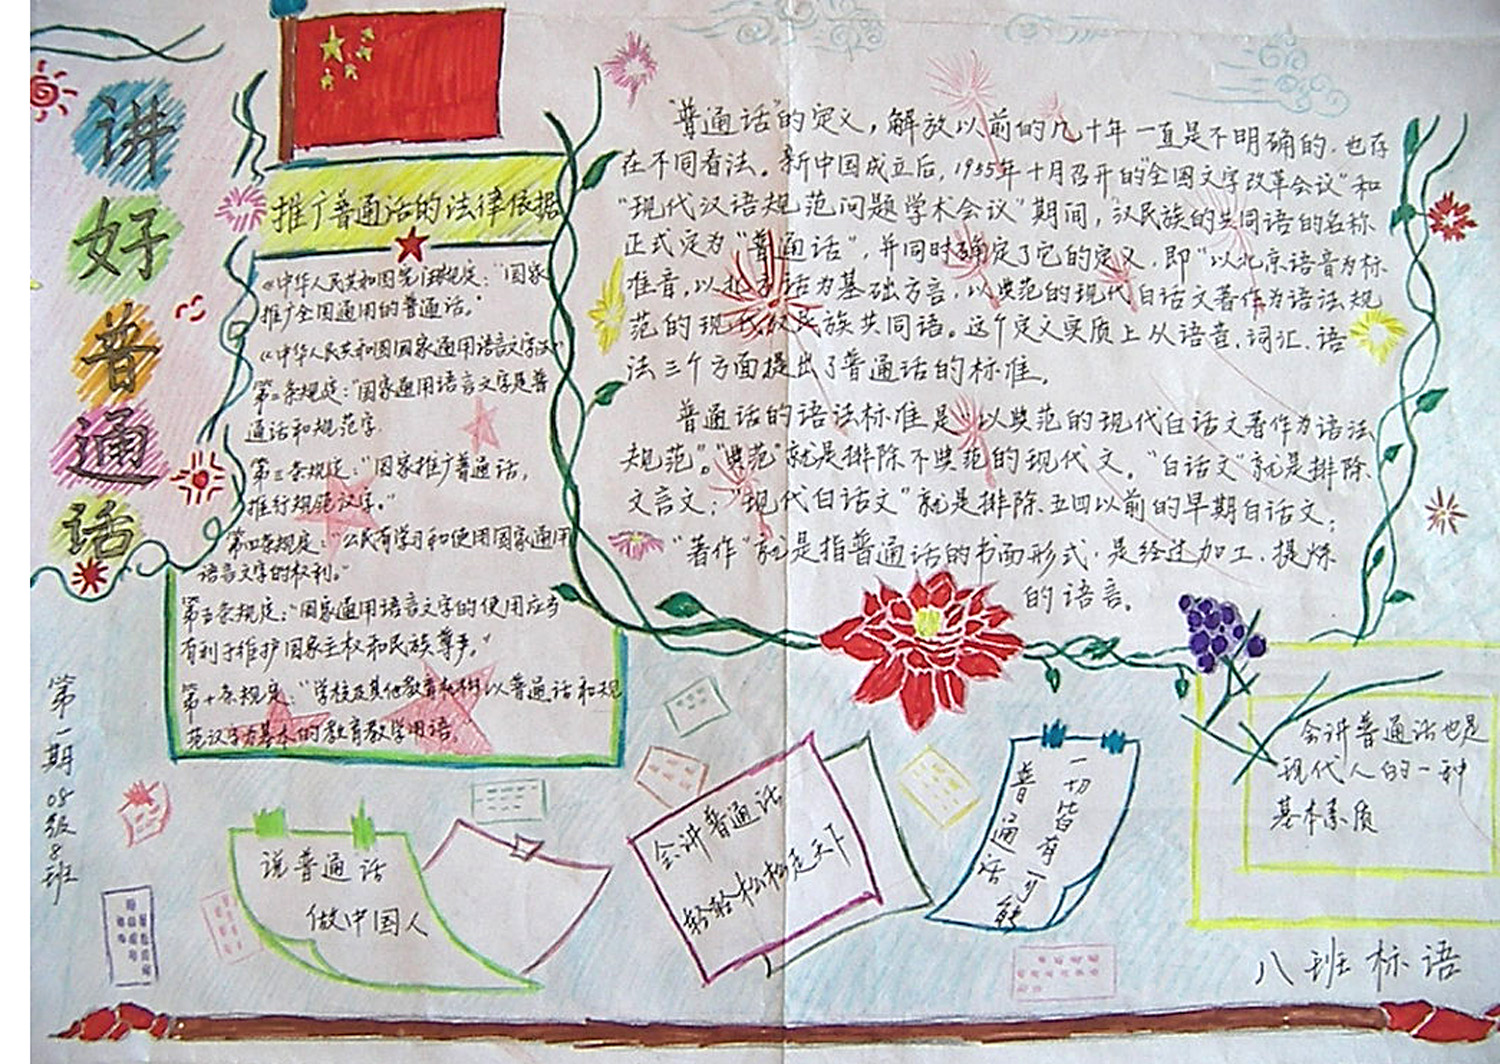 讲
好
普
通
话
第一期 08级8班
推广普通话的法律依据
《中华人民共和国宪法》规定：“国家
推广全国通用的普通话。”
《中华人民共和国国家通用语言文字法》
第二条规定：“国家通用语言文字是普
通话和规范字.
第三条规定：“国家推广普通话，
推行规范汉字。”
第四条规定：“公民有学习和使用国家通用
语言文字的权利。”
第五条规定：“国家通用语言文字的使用应当
有利于维护国家主权和民族尊严。”
第十条规定：“学校及其他教育机构以普通话和规
范汉字为基本的教育教学用语。”
“普通话”的定义，解放以前的几十年一直是不明确的，也存
在不同看法。新中国成立后，1955年十月召开的“全国文字改革会议”和
“现代汉语规范问题学术会议”期间，汉民族的共同语的名称
正式定为“普通话”，并同时确定了它的定义，即“以北京语音为标
准音，以北方话为基础方言，以典范的现代白话文著作为语法规
范的现代汉民族共同语。这个定义实质上从语音、词汇、语
法三个方面提出了普通话的标准。
普通话的语法标准是“以典范的现代白话文著作为语法
规范”。“典范”就是排除不典范的现代文。“白话文”就是排除
文言文；“现代白话文”就是排除五四以前的早期白话文；
“著作”就是指普通话的书面形式，是经过加工、提炼
的语言。
说普通话
做中国人
会讲普通话
轻轻松松走天下
普通话
一切皆有可能
会讲普通话也是
现代人的一种
基本素质
八班标语